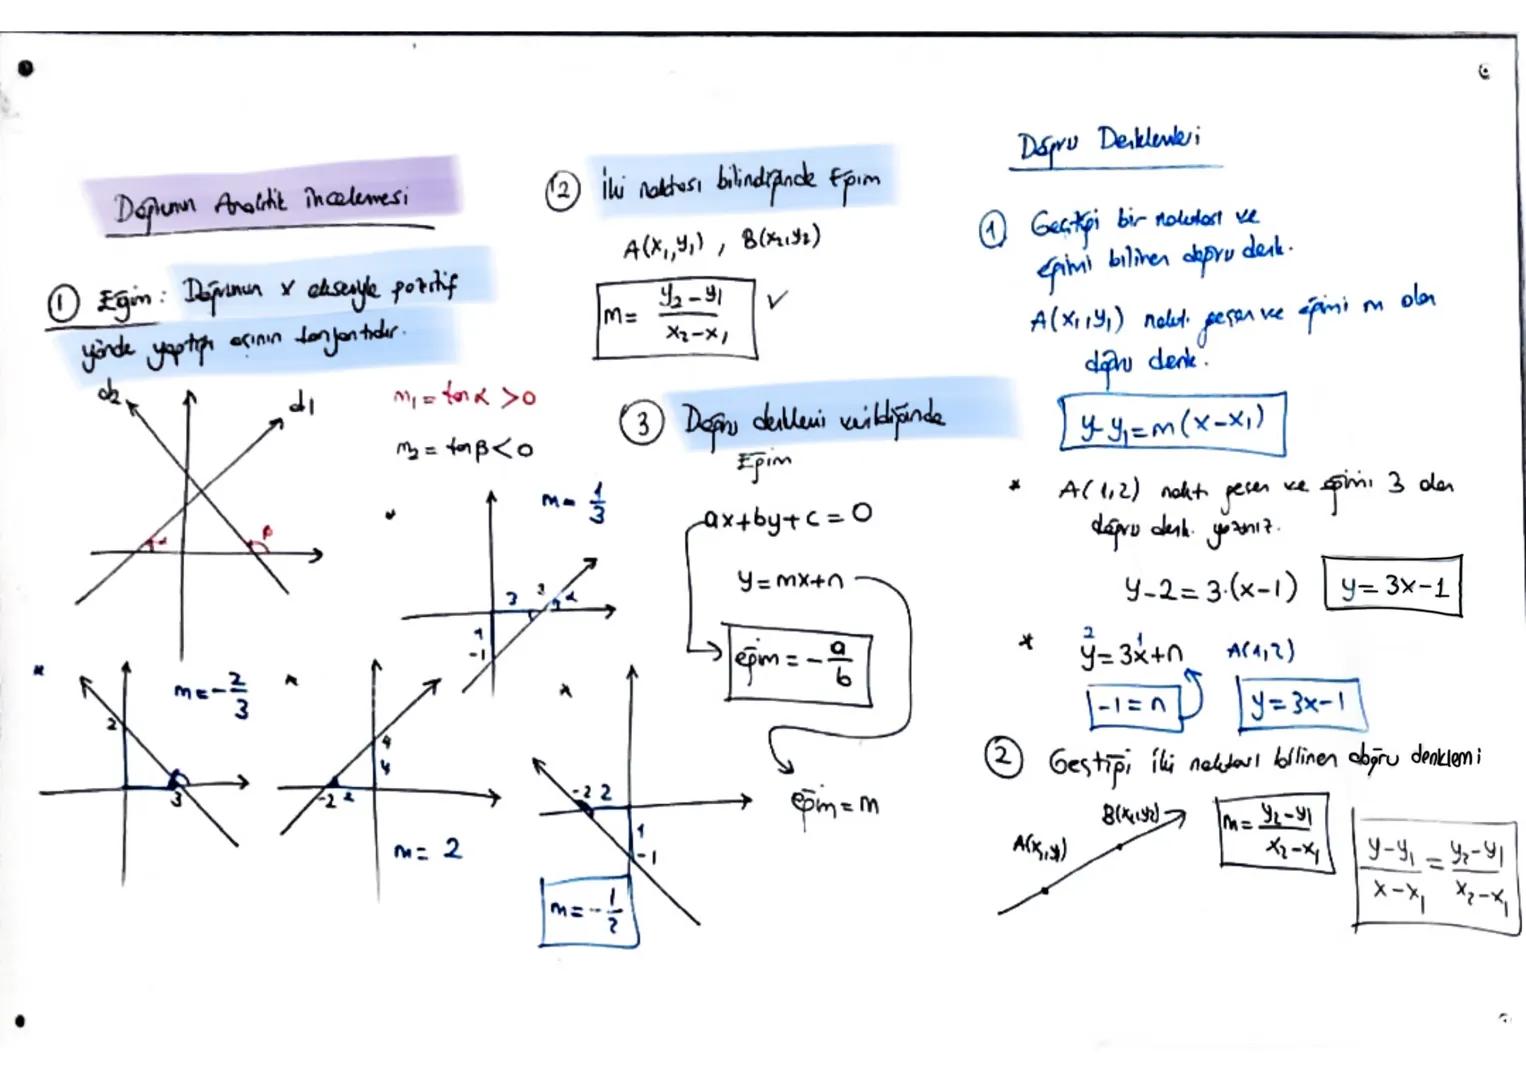 Doğrunun Analitik İncelemesi
① Eğim: Doğrunun x ekseniyle pozitif
yönde yaptığı açının tanjantıdır.
d2
d1
α
β
m₁ = tan α > 0
m₂ = tan β < 0
* m = 1/3
3
3
α
1
-1
* m = -2/3
2
3
*
4
4
-2 2
m = 2
*
-2 2
1
-1
m = -1/2
② İki noktası bilindiğinde Eğim
A(x₁,y₁) , B(x₂,y₂)
m = (y₂-y₁)/(x₂-x₁) ✓
③ Doğru denklemi verildiğinde
Eğim
ax+by+c=0
y=mx+n
eğim = -a/b
eğim=m
Doğru Denklemleri
① Geçtiği bir noktası ve
eğimi bilinen doğru denk.
A(x₁,y₁) nokt. geçen ve eğimi m olan
doğru denk.
y-y₁=m(x-x₁)
* A(1,2) nokt. geçen ve eğimi 3 olan
doğru denk. yazınız.
y-2=3.(x-1) y=3x-1
2 1
* y=3x+n A(1,2)
-1=n y=3x-1
② Geçtiği iki noktası bilinen doğru denklemi
A(x₁,y₁)
B(x₂,y₂)
m = (y₂-y₁)/(x₂-x₁)
(y-y₁)/(x-x₁) = (y₂-y₁)/(x₂-x₁)